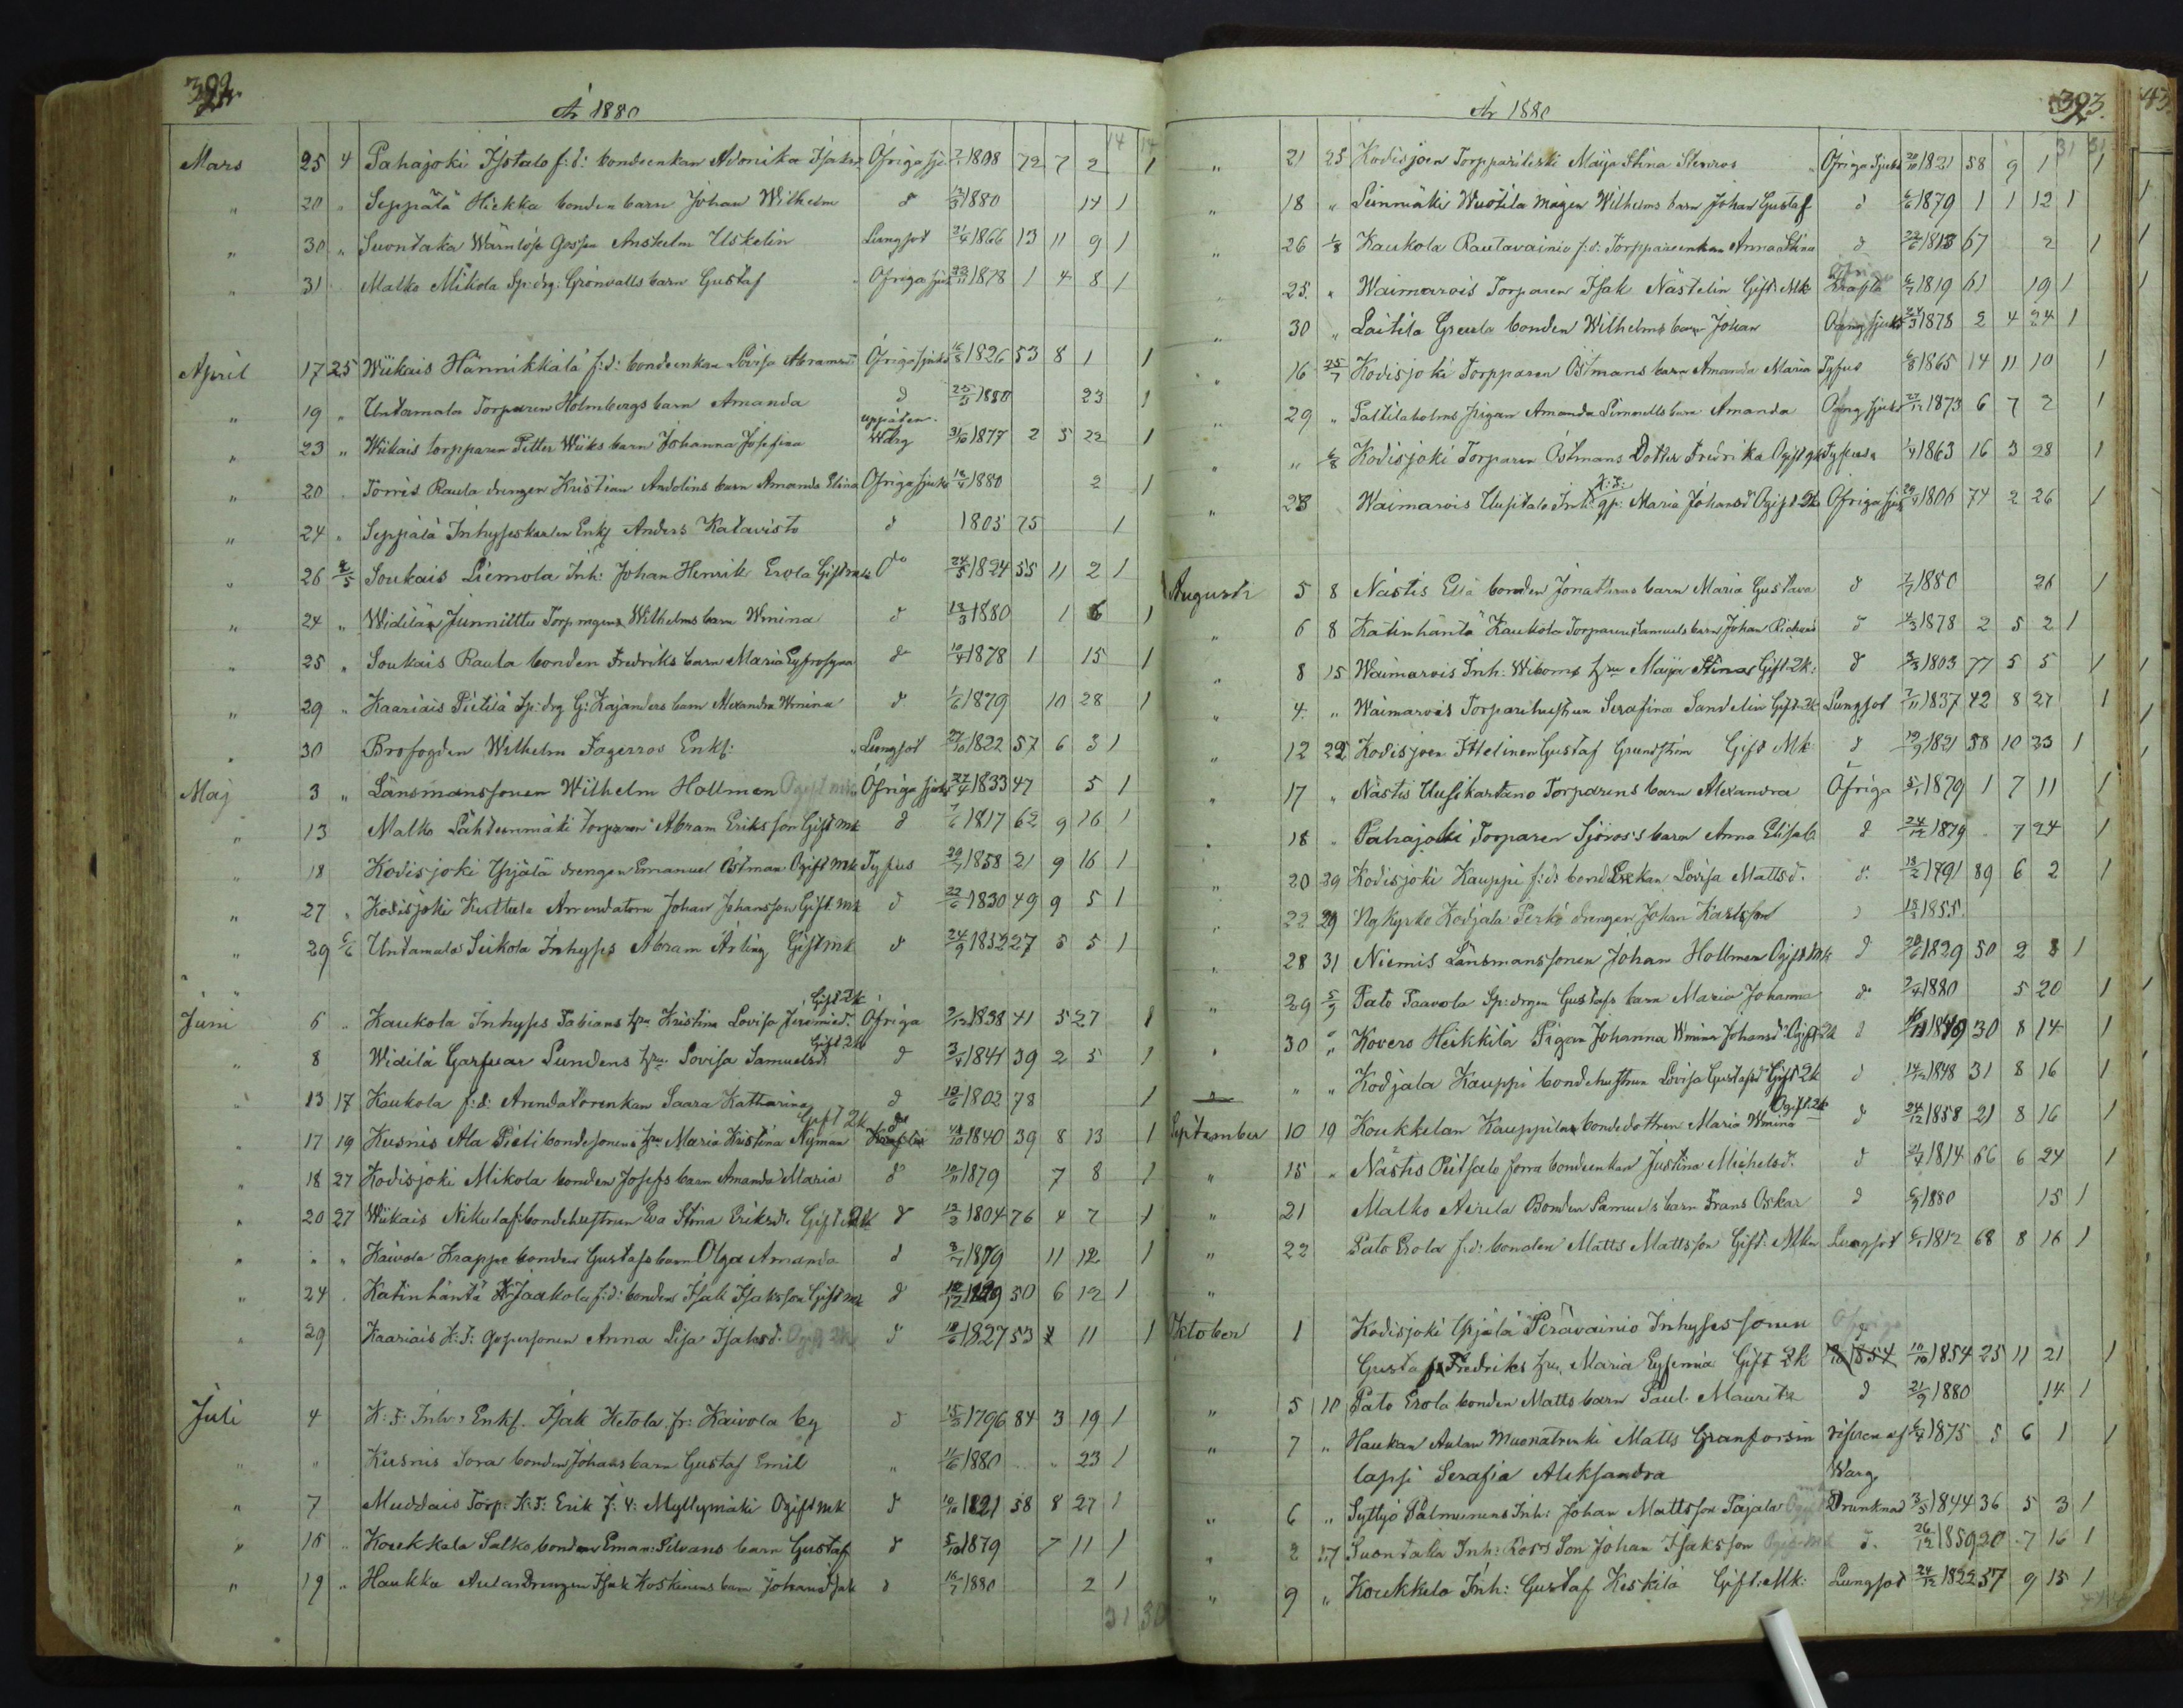 392.
År 1880
14 14
Mars 25 4 Pahajoki Isotalo f:d: bondeenkan Adonika Isaksd Öfriga sju 1808 72 7 2 1
" 20 " Seppälä Hiekka bonden barn Johan Wilhelm d 1880 14 1
" 30 " Suontaka Wärnlös Gossen Anshelm Uskelin Lungsot 21/4 1866 13 11 9 1
" 31 Malko Mikola Sp: drg: Grönvalls barn Gustaf Öfriga sjuk 23/11 1878 1 4 8 1
April 17 25 Wiikais Hännikkälä f:d: bondeenkan Lovisa Abramsd Öfriga sjukd 16/8 1826 53 8 1 1
" 19 " Untamala Torparen Holmbergs barn Amanda d 25/3 1880 23 1
" 23 " Wiikais torpparen Petter Wiiks barn Johanna Josefina uppäten Warg 31/10 1877 2 5 22 1
" 20 Torris Raula drengen Kristian Andelins barn Amanda Elina Öfriga sjukd 18/4 1880 2 1
" 24 " Seppälä Inhyseskarlen Enkl Anders Katavisto d 1805 75 1
" 26 2/5 Soukais Liemola Inh: Johan Henrik Erola Gift mk do 24/5 1824 55 11 2 1
" 24 " Widilä Junnittu Torp mågens Wilhelms barn Wmina d 18/3 1880 1 6 1
" 25 " Soukais Raula bonden Fredriks barn Maria Eyfrosyna do 10/4 1878 1 15 1
" 29 " Kaariais Pietilä Sp: drg G: Kajanders barn Alexandra Wmina d 1/6 1879 10 28 1
" 30 Brofogden Wilhelm Fagerros Enkl: Lungsot 27/10 1822 57 6 3 1
Maj 3 " Länsmanssonen Wilhelm Hollmen Ogift mk Öfriga sjukd 27/4 1833 47 5 1
" 13 Malko Lähteenmäki torparen Abram Eriksson Gift mk d 7/6 1817 62 9 16 1
" 18 Kodisjoki Yrjälä drengen Emanuel Östman Ogift Mk Tyfus 29/7 1858 21 9 16 1
" 27 " Kodisjoki Kesttula Arrendatorn Johan Johansson Gift mk d 22/6 1830 49 9 5 1
" 29 6/6 Untamala Seikola Inhyses Abram Arling Gift mk d 24/9 1852 27 5 5 1
Juni 6 " Kaukola Inhyses Fabians hru Kristina Lovisa Jeremied. Gift 2k Öfriga 9/12 1838 41 5 27 1
" 8 Widilä Garfvar Sundens hru Lovisa Samuelsd. Gift 2k d 3/4 1841 39 2 5 1
" 13 17 Kaukola f:d: Arendatorenkan Saara Katharina d 13/6 1802 78 1
" 17 19 Kusnis Ala Pieti bondesonens hru Maria Kristina Nyman Gift 2k 4/10 1840 39 8 13 1
" 18 27 Kodisjoki Mikola bonden Josefs barn Amanda Maria do 10/11 1879 7 8 1
" 20 27 Wiikais Nikula f: bondehustrun Eva Stina Eriksd. Gift 2k d 13/2 1804 76 4 7 1
" " " Kaivola Krappe bonden Gustafs barn Olga Amanda d 3/7 1879 11 12 1
" 24 . Katinhäntä Jaakola f:d: bonden Isak Isaksson Gift mk d 12/12 1829 50 6 12 1
" 29 Kaariais K:F: qvpersonen Anna Lisa Isaksd. Ogift 2k d 18/6 1827 53 11 1
Juli 4 K: F: Inh: Enkl. Isak Ketola fr: Kaivola by d 15/3 1796 84 3 19 1
" " Kusnis Sora bonden Johans barn Gustaf Emil " 11/6 1880 " 23 1
" 7 Muddais Torp: K: F: Erik J: V: Myllymäki Ogift mk d 10/10 1821 58 8 27 1
" 16 " Koukkela Salko bonden Eman: Silvans barn Gustaf d 5/12 1879 7 11 1
" 19 " Haukka Aulan Drengen Isak Koskinens barn Johan Isak d 16/7 1880 2 1
31 30
År 1880
393.
43.
31 31
" 21 25 Kodisjoen Torpparileski Maija Stina Stenros Öfriga sjukd 20/10 1821 58 9 1 1
" 18 " Leinmäki Wuotila mågen Wilhelms barn Johan Gustaf d 6/6 1879 1 1 12 1
" 26 1/8 Kaukola Rautavainio f:d: Torppareenkan Anna Stina d 22/6 1813 67 2 1
" 25. " Waimarois Torparen Isak Nästelin Gift Mk Öfriga Krafta 6/7 1819 61 19 1
" 30 " Laitila Greula bonden Wilhelms barn Johan Öfrig sjukd 24/3 1878 2 4 24 1
" 16 25/7 Kodisjoki Torpparen Östmans barn Amanda Maria Tyfus 6/8 1865 14 11 10 1
" 29 " Palttilaholms pigan Amanda Simnells barn Amanda Öfrig sjukd 27/12 1873 6 7 2 1
" " 6/8 Kodisjoki Torparen Östmans Dotter Fredrika Ogift qk Tyfus 1/4 1863 16 3 28 1
" 28 Waimarois Uusitalo Inh: K:F: qp: Maria Johansd Ogift 2k Öfriga sjuk 1806 74 2 26 1
Augusti 5 8 Nästis Eliä bonden Jonathans barn Maria Gustava d 7/7 1880 26 1
" 6 8 Katinhäntä Kaukola Torparen Samuels barn Johan Richard d 4/3 1878 2 5 2 1
" 8 15 Waimarois Inh: Wiboms hru Maija Stina Gift 2k: d 3/3 1803 77 5 5 1
" 4. " Waimarois Torparihustrun Serafina Sandelin Gift 2k Lungsot 7/11 1837 42 8 27 1
" 12 22 Kodisjoen Ittelinen Gustaf Grundström Gift Mk: d 19/9 1821 58 10 23 1
" 17 " Nästis Uusikartano Torparens barn Alexandra Öfriga 5/1 1879 1 7 11 1
" 18 " Pahajoki Torparen Sjöros's barn Anna Elisab. d 24/12 1879 . 7 24 1
" 20 29 Kodisjoki Kauppi f:d: bondEnkan Lovisa Mattsd. d. 18/2 1791 89 6 2 1
" 22 29 Nykyrko Kodjala Perko drengen Johan Karlsson d 15/2 1855.
" 28 31 Niemis Länsmanssonen Johan Hollmen Ogift Mk d 20/6 1829 50 2 8 1
" 29 5/9 Pato Taavola Sp: drgen Gustafs barn Maria Johanna do 2/4 1880 5 20 1
" 30 " Kovero Heikkilä Pigan Johanna Wmina Johansd Ogift 2k d 1849 30 8 14 1
" " Kodjala Kauppi bondehustrun Lovisa Gustafsd Gift 2k d 14/12 1848 31 8 16 1
September 10 19 Koukkelan Kauppila bondedottren Maria Wmina Ogift 2k d 24/12 1858 21 8 16 1
" 15 " Nästis Peitsalo forra bondeenkan Justina Michelsd. d 1814 66 6 24 1
" 21 Malko Airila Bonden Samuels barn Frans Oskar d 6/9 1880 15 1
" 22 Pato Erola f:d: bonden Matts Mattsson Gift: Mkn Lungsot 6/1 1812 68 8 16 1
"
Oktober 1 Kodisjoki Yrjälä Perävainio Inhysessonen Öfriga
Gustaf Fredriks hru Maria Eyfemia Gift 2k d 10/10 1854 25 11 21 1
" 5 10 Pato Erola bonden Matts barn Paul Mauritz d 21/9 1880 14 1
" 7 " Haukan Aulan Muonatrenki Matts Granforsin rifven af 6/4 1875 5 6 1 1
lapsi Serafia Aleksandra Warg
" 6 " Syttyö Palmunens Inh: Johan Mattsson Pajala Drunknad 3/5 1844 36 5 3 1
" 2 17 Suontaka Inh: Ross Son Johan Isaksson Ogift mk d. 26/12 1859 20 7 16 1
" 9 " Koukkela Inh: Gustaf Keskilä Gift: Mk: Lungsot 24/12 1822 57 9 15 1